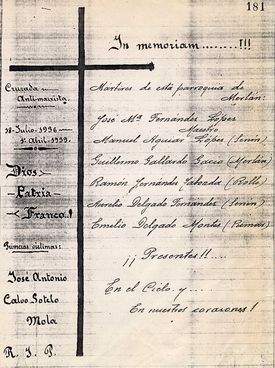 181
In memoriam........!!!
Cruzada
Anti-marxista
18-Julio-1936
1º Abril-1939.
Dios
Patria
Franco!
Primeras victimas:
José Antonio
Calvo Sotelo
Mola
R. I. P.
Martires de esta parroquia de
Merlán:
José Mª Fernández López
Maestro
Manuel Aguiar López
Guillermo Gallardo (Merlán)
Ramón Fernández
Aurelio Delgado Fernández
Emilio Delgado Montes
¡¡ Presentes!!....
En el Cielo y...
En nuestros corazones!